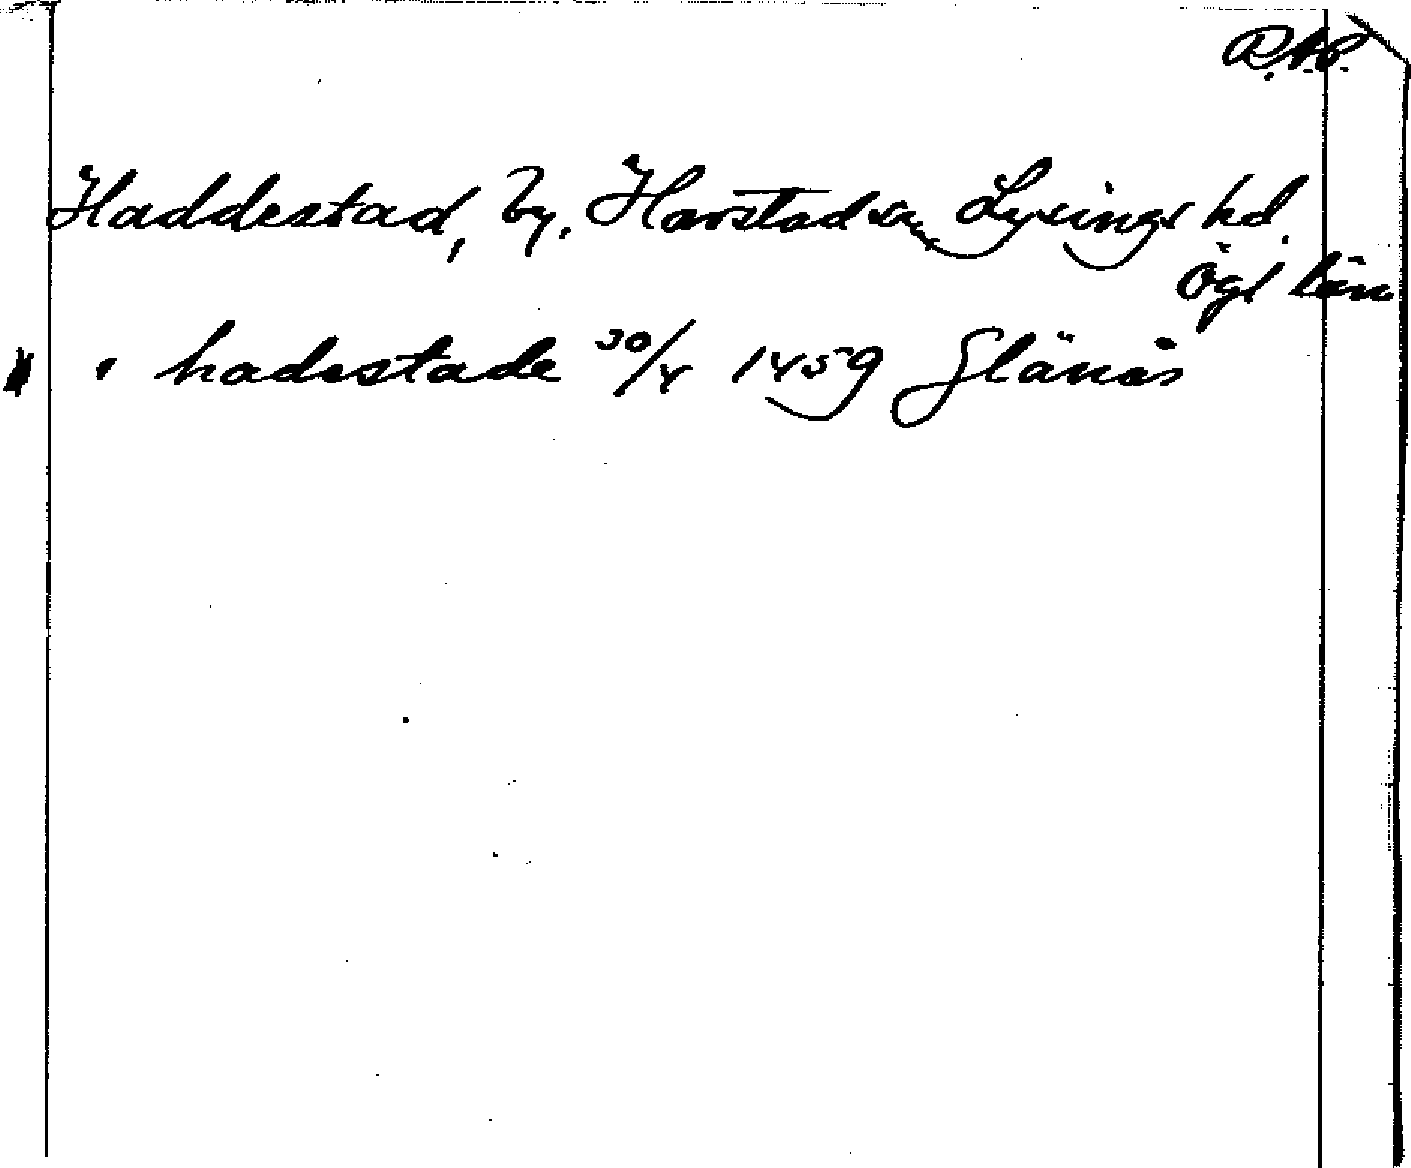 R.A.P.
Haddestad, by, Harstad sn, Lysings hd.
Ögl län
i hadestade 30/4 1459 Glänås